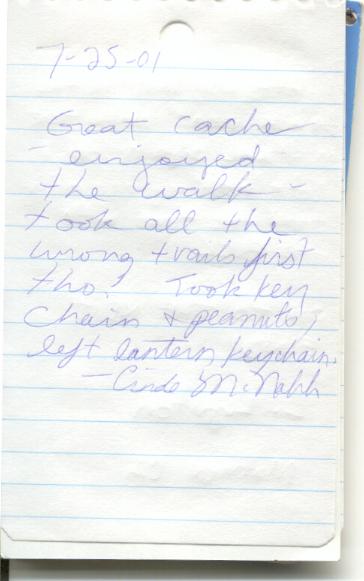 7-25-01
Great cache
- enjoyed
the walk -
took all the
wrong trails first
tho! Took key
chain + peanuts,
left lantern keychain.